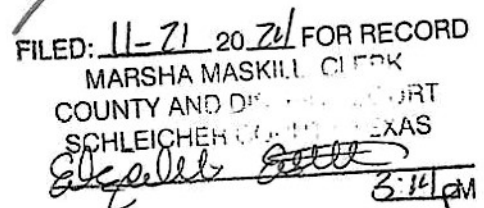 FILED: 11-21 2024 FOR RECORD
MARSHA MASKILL CLERK
COUNTY AND COURT
SCHLEICHER COUNTY TEXAS
3:14 PM